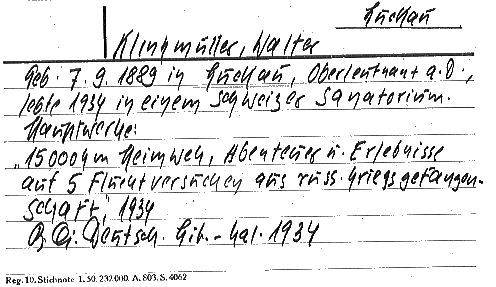 Luckau
Klingmüller, Walter
Geb. 7. 9. 1889 in Luckau, Oberleutnant a.D.,
lebte 1934 in einem Schweizer Sanatorium.
Hauptwerke:
„15000 km Heimweh, Abenteuer u. Erlebnisse
auf 5 Fluchtversuchen aus russ. Kriegsgefangen-
schaft“, 1934
Deutsch. Lit.-Kal. 1934
Reg. 10. Stichnote 1. 50. 232 000. A. 803. S. 4062